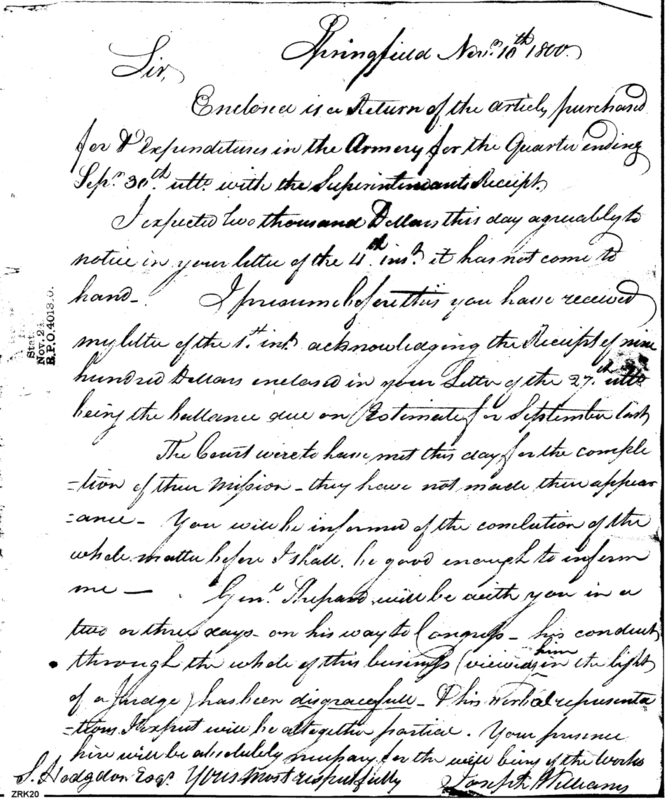 Springfield Novr. 10th 1800.
Sir,
Enclosed is a Return of the articles purchased
for & Expenditures in the Armory for the Quarter ending
Sepr. 30th. ulto with the Superintendants Receipt.
I expected two thousand Dollars this day agreably to
notice in your letter of the 4th. inst. it has not come to
hand_ I presume before this you have received
my letter of the 1st. inst. acknowledging the Receipt of nine
hundred Dollars enclosed in your Letter of the 27th. ulto
being the ballance due on Estimate for September last
The Court were to have met this day for the comple
=tion of their mission_ they have not made their appear
=ance_ You will be informed of the conclusion of the
whole matter before I shall, be good enough to inform
me_ Genl. Shepard will be with you in a
two or three days_ on his way to Congress_ his conduct
through the whole of this business (viewing him in the light
of a Judge) has been disgracefull_ & his verbal representa
=tions I expect will be altogether partial. Your presence
here will be absolutely necessary for the well being of the Works
S. Hodgdon Esqr. Yours most respectfully Joseph Williams
Stat.
Nov. 21
R.P.O.4013.0.
ZRK20